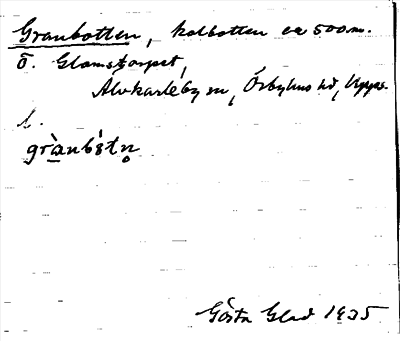 Granbotten, kolbotten ca 500 m.
ö. Glamstorpet,
Älvkarleby sn, Örbyhus hd, Upps.
l.
grànbòtn̥
Gösta Glad 1935